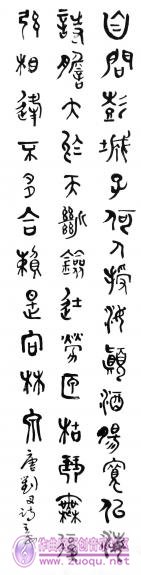 自問彭城子何人授汝顛酒腸寬似海
詩膽大於天斷劍徒勞匣枯琴無復
弦相逢不多合賴是向林泉
唐劉叉詩
www.zuoqu.net